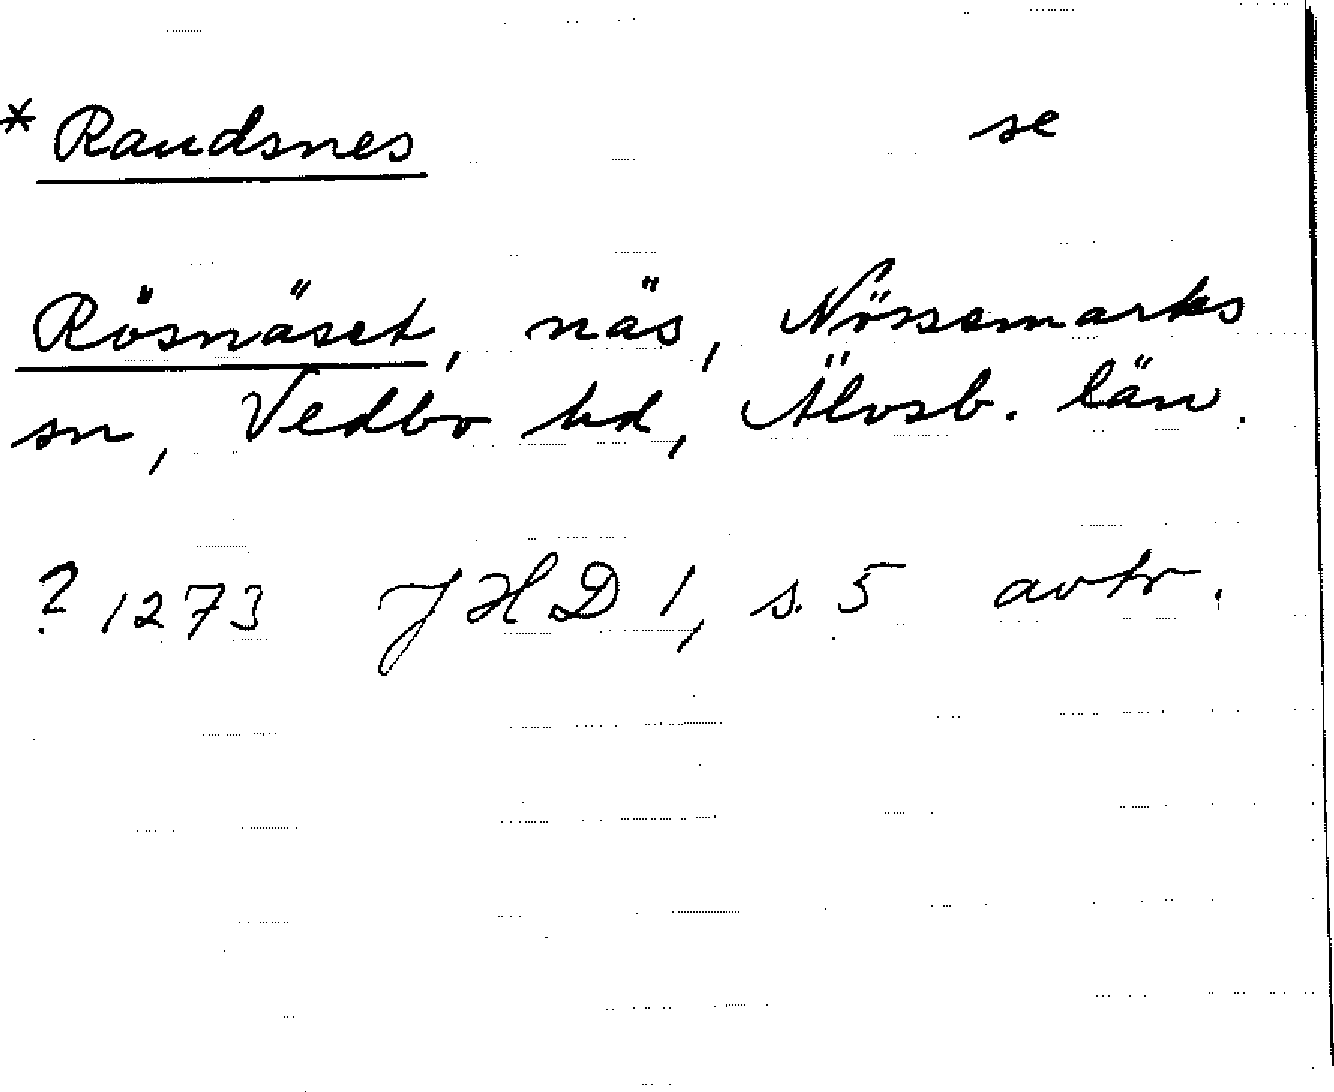 * Raudsnes se
Rösnäset, näs, Nössemarks
sn, Vedbo hd, Älvsb. län.
? 1273 JHD 1, s. 5 avtr.